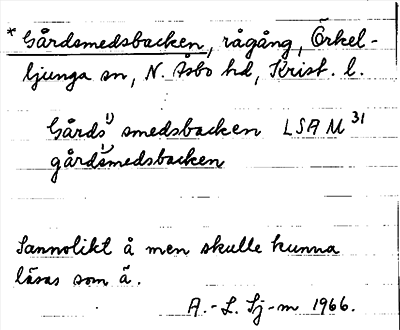 * Gårdsmedsbacken, rågång, Örkel-
ljunga sn, N. Åsbo hd, Krist. l.
Gårds¹⁾ smedsbacken LSA M³¹
gårds¹⁾medsbacken
Sannolikt å men skulle kunna
läsas som ä.
A.-L. Sj-m 1966.